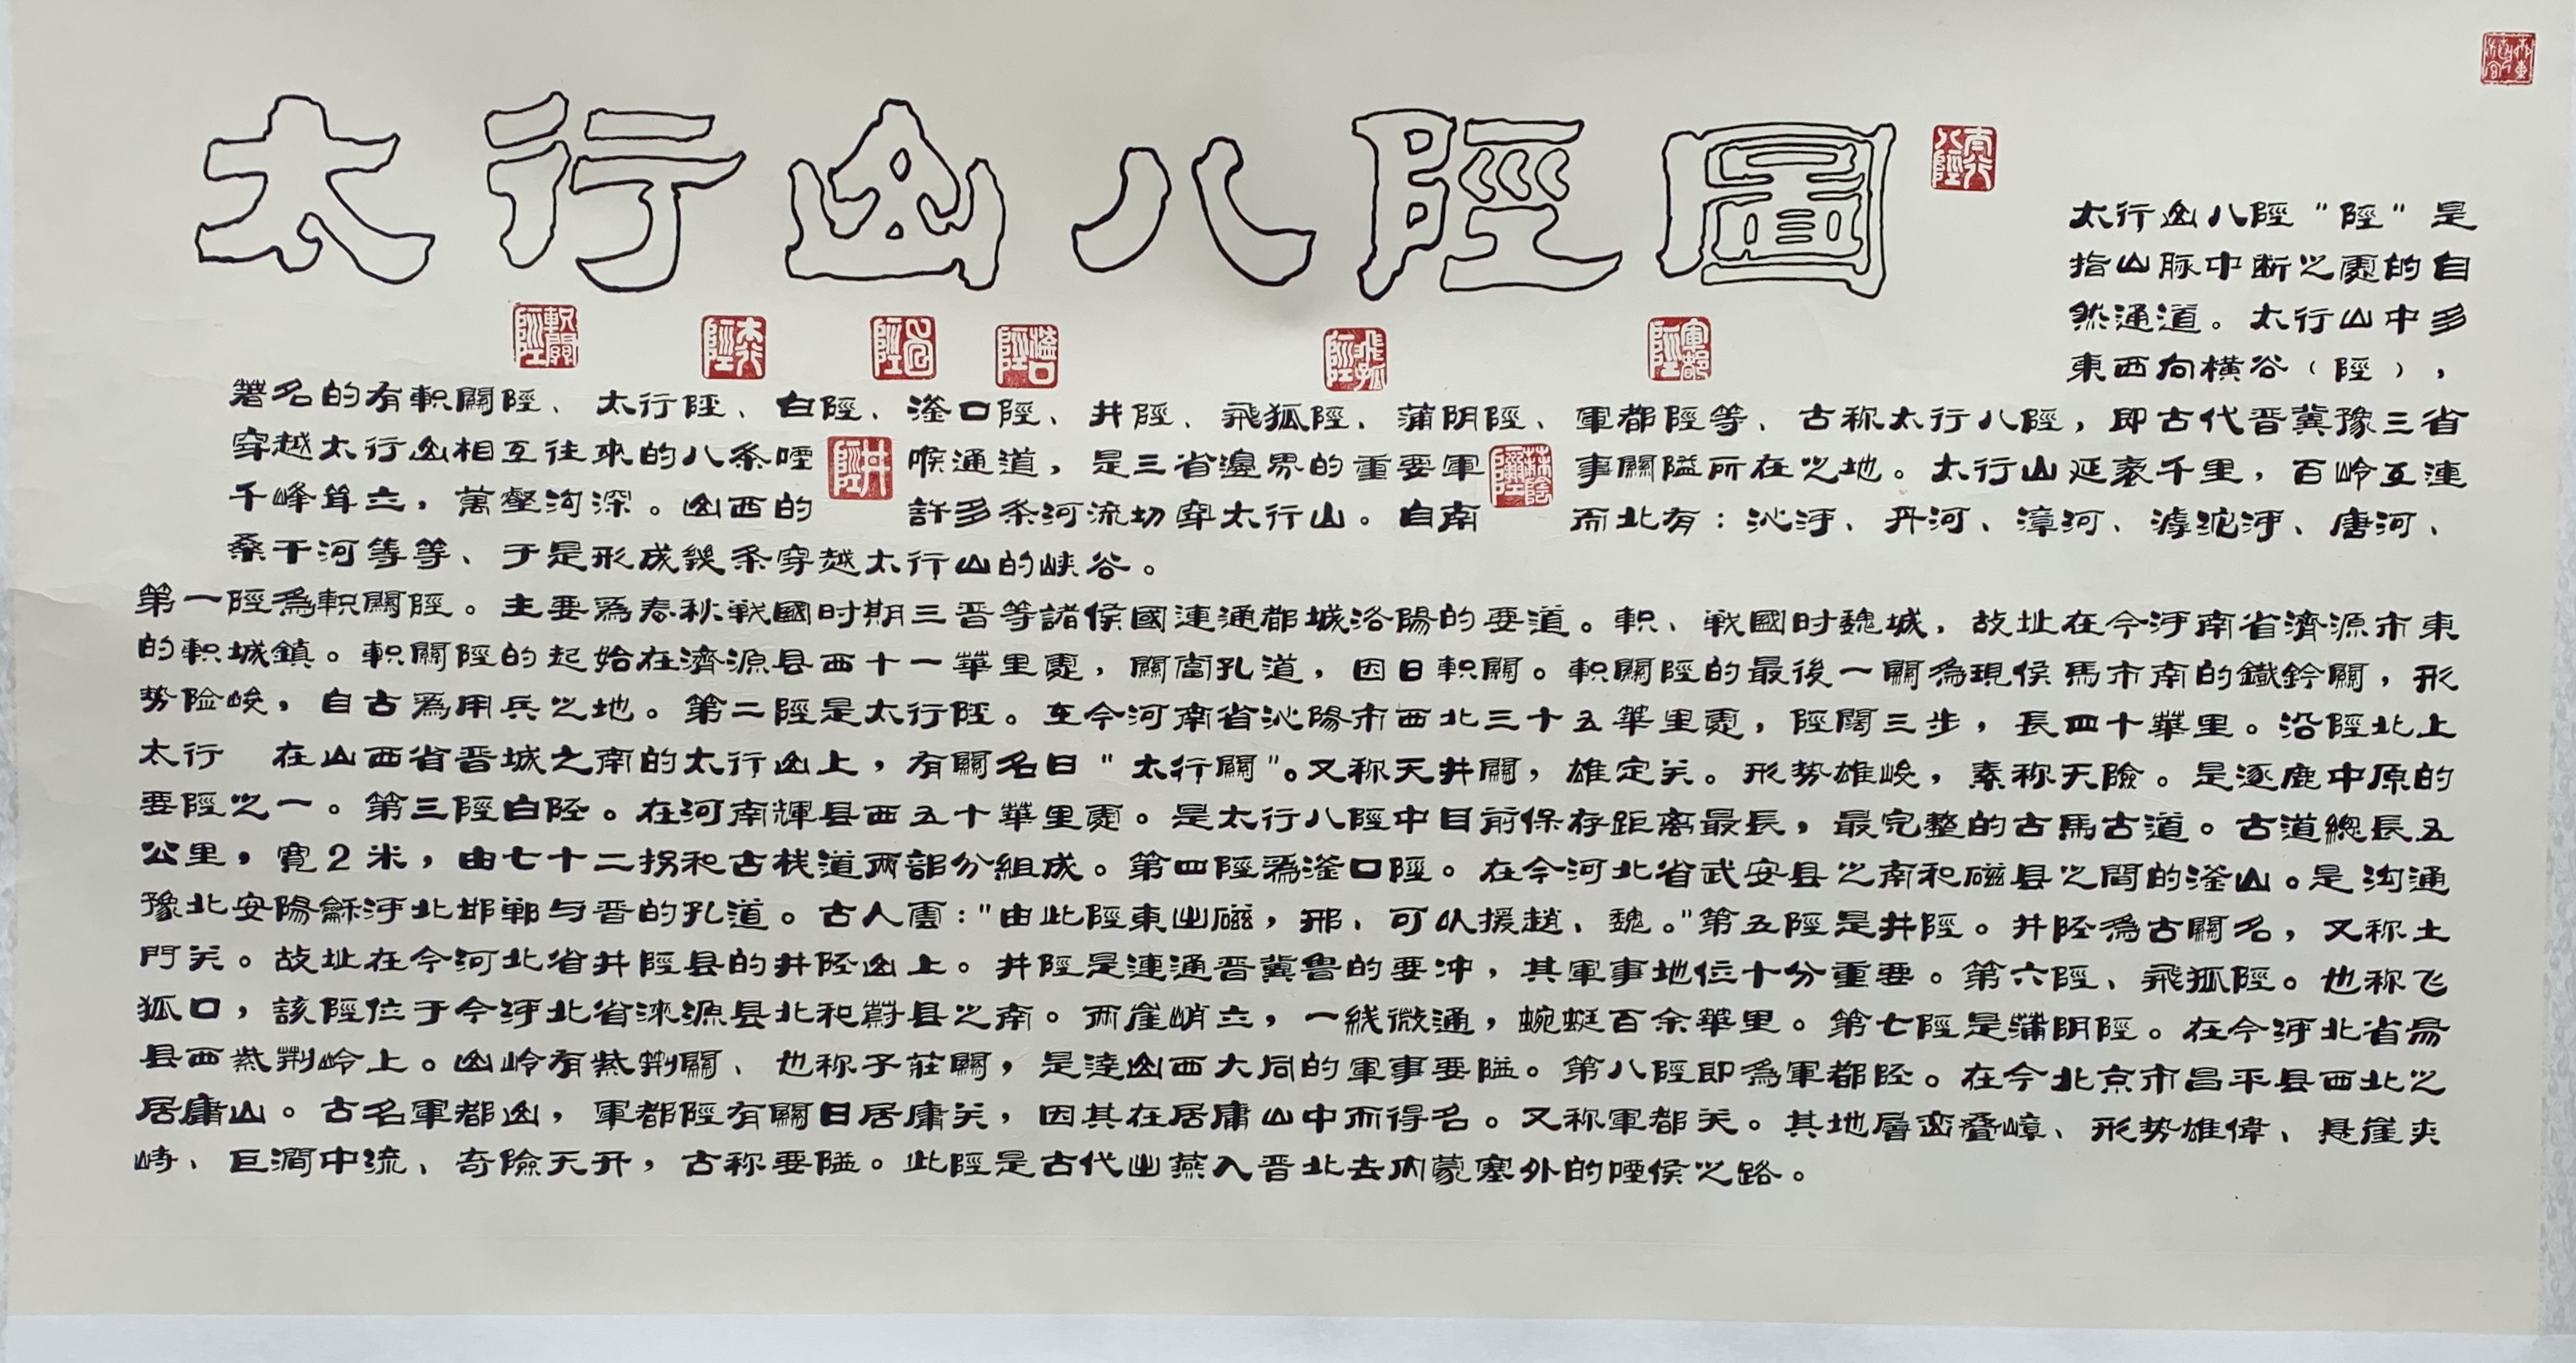 太行山八陘圖
太行八陘
太行山八陘"陘"是
指山脉中断之處的自
然通道。太行山中多
東西向横谷（陘），
軹關陘
太行陘
白陘
滏口陘
飛狐陘
軍都陘
著名的有軹關陘、太行陘、白陘、滏口陘、井陘、飛狐陘、蒲阴陘、軍都陘等、古称太行八陘，即古代晋冀豫三省
穿越太行山相互往來的八条咽喉通道，是三省邊界的重要軍事關隘所在之地。太行山延袤千里，百岭互連
井陘
蒲陰陘
千峰耸立，萬壑沟深。山西的許多条河流切穿太行山。自南而北有：沁河、丹河、漳河、滹沱河、唐河、
桑干河等等、于是形成幾条穿越太行山的峡谷。
第一陘為軹關陘。主要爲春秋戰國时期三晋等諸侯國連通都城洛陽的要道。軹、戰國时魏城，故址在今河南省濟源市東
的軹城鎮。軹關陘的起始在濟源县西十一華里處，關當孔道，因曰軹關。軹關陘的最後一關為現侯馬市南的鐵鈴關，形
势险峻，自古爲用兵之地。第二陘是太行陘。在今河南省沁陽市西北三十五華里處，陘闊三步，長四十華里。沿陘北上
太行 在山西省晋城之南的太行山上，有關名曰"太行關"。又称天井關，雄定关。形势雄峻，素称天險。是逐鹿中原的
要陘之一。第三陘白陘。在河南輝县西五十華里處。是太行八陘中目前保存距离最長，最完整的古馬古道。古道總長五
公里，寬2米，由七十二拐和古栈道两部分組成。第四陘爲滏口陘。在今河北省武安县之南和磁县之間的滏山。是沟通
豫北安陽龢河北邯鄲与晋的孔道。古人雲："由此陘東出磁，邢、可以援趙、魏。"第五陘是井陘。井陘為古關名，又称土
門关。故址在今河北省井陘县的井陘山上。井陘是連通晋冀鲁的要冲，其軍事地位十分重要。第六陘、飛狐陘。也称飞
狐口，該陘位于今河北省淶源县北和蔚县之南。两崖峭立，一线微通，蜿蜒百余華里。第七陘是蒲阴陘。在今河北省易
县西紫荆岭上。山岭有紫荆關、也称子莊關，是達山西大同的軍事要隘。第八陘即為軍都陘。在今北京市昌平县西北之
居庸山。古名軍都山，軍都陘有關曰居庸关，因其在居庸山中而得名。又称軍都关。其地層峦叠嶂、形势雄偉、悬崖夹
峙、巨澗中流、奇險天开，古称要隘。此陘是古代出燕入晋北去内蒙塞外的咽侯之路。